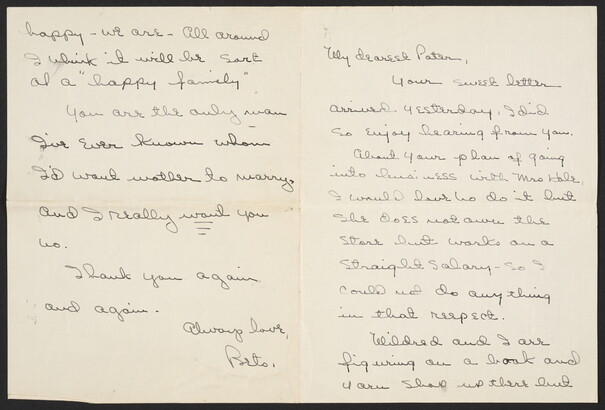 My dearest Pater,
Your sweet letter
arrived yesterday. I did
so enjoy hearing from you.
About your plan of going
into business with Mrs Hale,
I would love to do it but
she does not own the
store but works on a
straight salary - so I
could not do anything
in that respect.
Mildred and I are
figuring on a book and
yarn shop up there but
happy - we are - all around
I think it will be sort
of a "happy family"
You are the only man
I've ever known whom
I'd want mother to marry,
and I really want you
to.
Thank you again
and again.
Always love,
Bets.